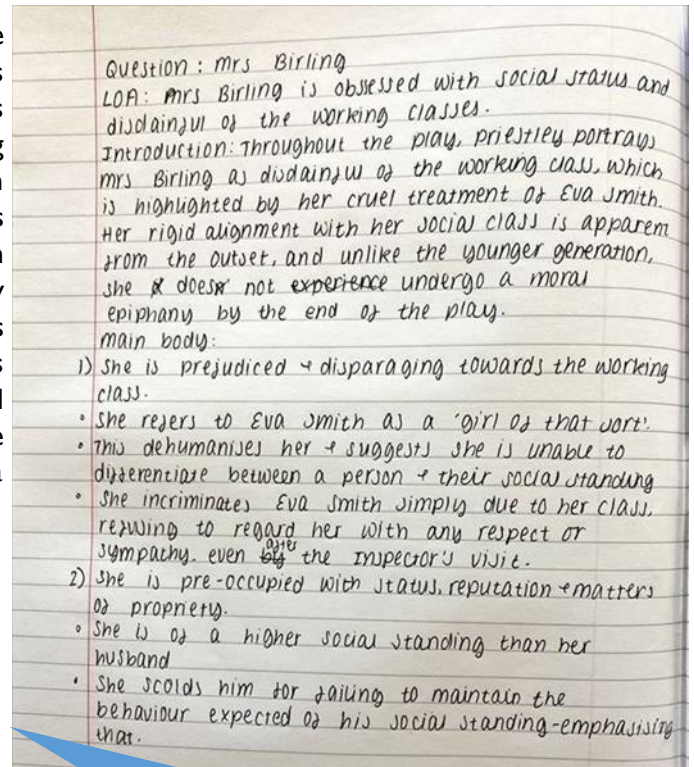 Question: Mrs Birling
LOA: Mrs Birling is obssessed with social status and
disdainful of the working classes.
Introduction: Throughout the play, priestley portrays
mrs Birling as disdainful of the working class, which
is highlighted by her cruel treatment of Eva Smith.
Her rigid alignment with her social class is apparent
from the outset, and unlike the younger generation,
she does not experience undergo a moral
epiphany by the end of the play.
main body:
1) She is prejudiced + disparaging towards the working
class.
• She refers to Eva Smith as a 'girl of that sort'.
• This dehumanises her + suggests she is unable to
differentiate between a person + their social standing
• She incriminates Eva Smith simply due to her class,
refusing to regard her with any respect or
sympathy. even after the Inspector's visit.
2) She is pre-occupied with status, reputation + matters
of propriety.
• She is of a higher social standing than her
husband
• She scolds him for failing to maintain the
behaviour expected of his social standing-emphasising
that.